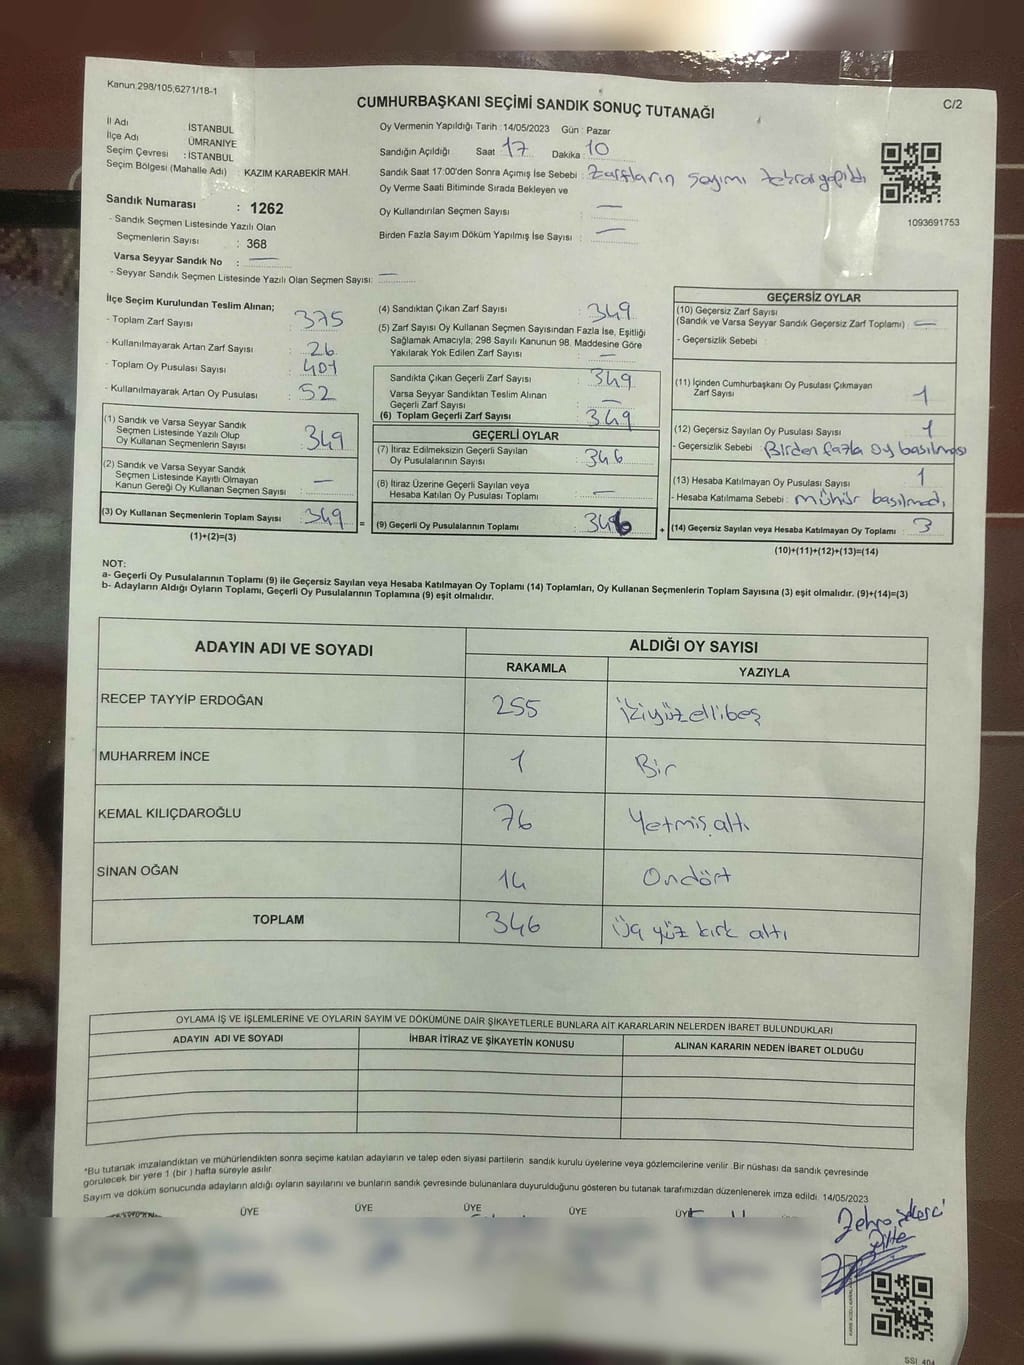 Kanun.298/105;6271/18-1
C/2
CUMHURBAŞKANI SEÇİMİ SANDIK SONUÇ TUTANAĞI
İl Adı : İSTANBUL
İlçe Adı ÜMRANİYE
Seçim Çevresi : İSTANBUL
Seçim Bölgesi (Mahalle Adı) : KAZIM KARABEKİR MAH.
Sandık Numarası : 1262
- Sandık Seçmen Listesinde Yazılı Olan
Seçmenlerin Sayısı : 368
Varsa Seyyar Sandık No : —
- Seyyar Sandık Seçmen Listesinde Yazılı Olan Seçmen Sayısı: —
Oy Vermenin Yapıldığı Tarih : 14/05/2023 Gün : Pazar
Sandığın Açıldığı Saat : 17 Dakika : 10
Sandık Saat 17:00'den Sonra Açımış İse Sebebi : Zarfların sayımı tekrar yapıldı
Oy Verme Saati Bitiminde Sırada Bekleyen ve
Oy Kullandırılan Seçmen Sayısı : —
Birden Fazla Sayım Döküm Yapılmış İse Sayısı : —
1093691753
İlçe Seçim Kurulundan Teslim Alınan;
- Toplam Zarf Sayısı : 375
- Kullanılmayarak Artan Zarf Sayısı : 26
- Toplam Oy Pusulası Sayısı : 401
- Kullanılmayarak Artan Oy Pusulası : 52
(1) Sandık ve Varsa Seyyar Sandık
Seçmen Listesinde Yazılı Olup
Oy Kullanan Seçmenlerin Sayısı : 349
(2) Sandık ve Varsa Seyyar Sandık
Seçmen Listesinde Kayıtlı Olmayan
Kanun Gereği Oy Kullanan Seçmen Sayısı : —
(3) Oy Kullanan Seçmenlerin Toplam Sayısı : 349
(1)+(2)=(3)
(4) Sandıktan Çıkan Zarf Sayısı : 349
(5) Zarf Sayısı Oy Kullanan Seçmen Sayısından Fazla İse, Eşitliği
Sağlamak Amacıyla; 298 Sayılı Kanunun 98. Maddesine Göre
Yakılarak Yok Edilen Zarf Sayısı : —
Sandıkta Çıkan Geçerli Zarf Sayısı : 349
Varsa Seyyar Sandıktan Teslim Alınan
Geçerli Zarf Sayısı : —
(6) Toplam Geçerli Zarf Sayısı : 349
GEÇERLİ OYLAR
(7) İtiraz Edilmeksizin Geçerli Sayılan
Oy Pusulalarının Sayısı : 346
(8) İtiraz Üzerine Geçerli Sayılan veya
Hesaba Katılan Oy Pusulası Toplamı : —
= (9) Geçerli Oy Pusulalarının Toplamı : 346
GEÇERSİZ OYLAR
(10) Geçersiz Zarf Sayısı
(Sandık ve Varsa Seyyar Sandık Geçersiz Zarf Toplamı) : —
- Geçersizlik Sebebi :
(11) İçinden Cumhurbaşkanı Oy Pusulası Çıkmayan
Zarf Sayısı : 1
(12) Geçersiz Sayılan Oy Pusulası Sayısı : 1
- Geçersizlik Sebebi : Birden fazla oy basılması
(13) Hesaba Katılmayan Oy Pusulası Sayısı : 1
- Hesaba Katılmama Sebebi : mühür basılmadı
+ (14) Geçersiz Sayılan veya Hesaba Katılmayan Oy Toplamı : 3
(10)+(11)+(12)+(13)=(14)
NOT:
a- Geçerli Oy Pusulalarının Toplamı (9) ile Geçersiz Sayılan veya Hesaba Katılmayan Oy Toplamı (14) Toplamları, Oy Kullanan Seçmenlerin Toplam Sayısına (3) eşit olmalıdır. (9)+(14)=(3)
b- Adayların Aldığı Oyların Toplamı, Geçerli Oy Pusulalarının Toplamına (9) eşit olmalıdır.
ADAYIN ADI VE SOYADI ALDIĞI OY SAYISI
RAKAMLA YAZIYLA
RECEP TAYYİP ERDOĞAN 255 ikiyüzellibeş
MUHARREM İNCE 1 Bir
KEMAL KILIÇDAROĞLU 76 Yetmiş altı
SİNAN OĞAN 14 Ondört
TOPLAM 346 Üç yüz kırk altı
OYLAMA İŞ VE İŞLEMLERİNE VE OYLARIN SAYIM VE DÖKÜMÜNE DAİR ŞİKAYETLERLE BUNLARA AİT KARARLARIN NELERDEN İBARET BULUNDUKLARI
ADAYIN ADI VE SOYADI İHBAR İTİRAZ VE ŞİKAYETİN KONUSU ALINAN KARARIN NEDEN İBARET OLDUĞU
*Bu tutanak imzalandıktan ve mühürlendikten sonra seçime katılan adayların ve talep eden siyasi partilerin sandık kurulu üyelerine veya gözlemcilerine verilir. Bir nüshası da sandık çevresinde
görülecek bir yere 1 (bir ) hafta süreyle asılır.
Sayım ve döküm sonucunda adayların aldığı oyların sayılarını ve bunların sandık çevresinde bulunanlara duyurulduğunu gösteren bu tutanak tarafımızdan düzenlenerek imza edildi. 14/05/2023
ÜYE ÜYE ÜYE ÜYE ÜYE